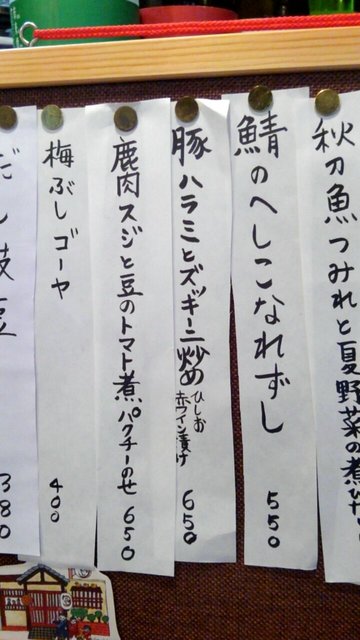 秋刀魚つみれと夏野菜の煮
鯖のへしこなれずし
550
豚ハラミとズッキーニ炒め
ひしお
赤ワイン漬け
650
鹿肉スジと豆のトマト煮パクチーのせ 650
梅ぶしゴーヤ
400
だし枝豆
380